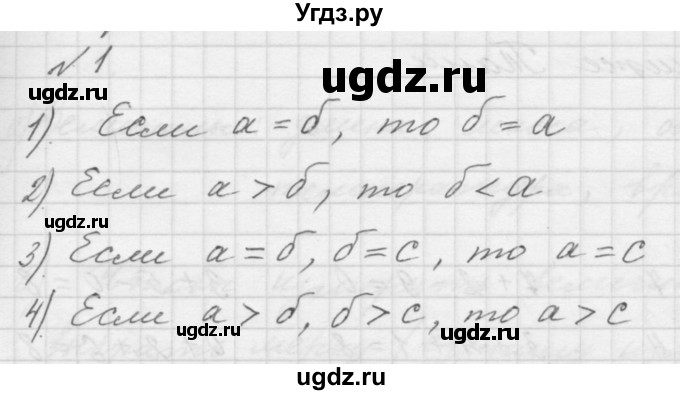 Угдз.ру
№1
ugdz.ru
ugdz.ru
1) Если а = б, то б = а
2) Если а > б, то б < а
ugdz.ru
3) Если а = б, б = с, то а = с
4) Если а > б, б > с, то а > с
ugdz.ru
ugdz.ru
ugdz.ru